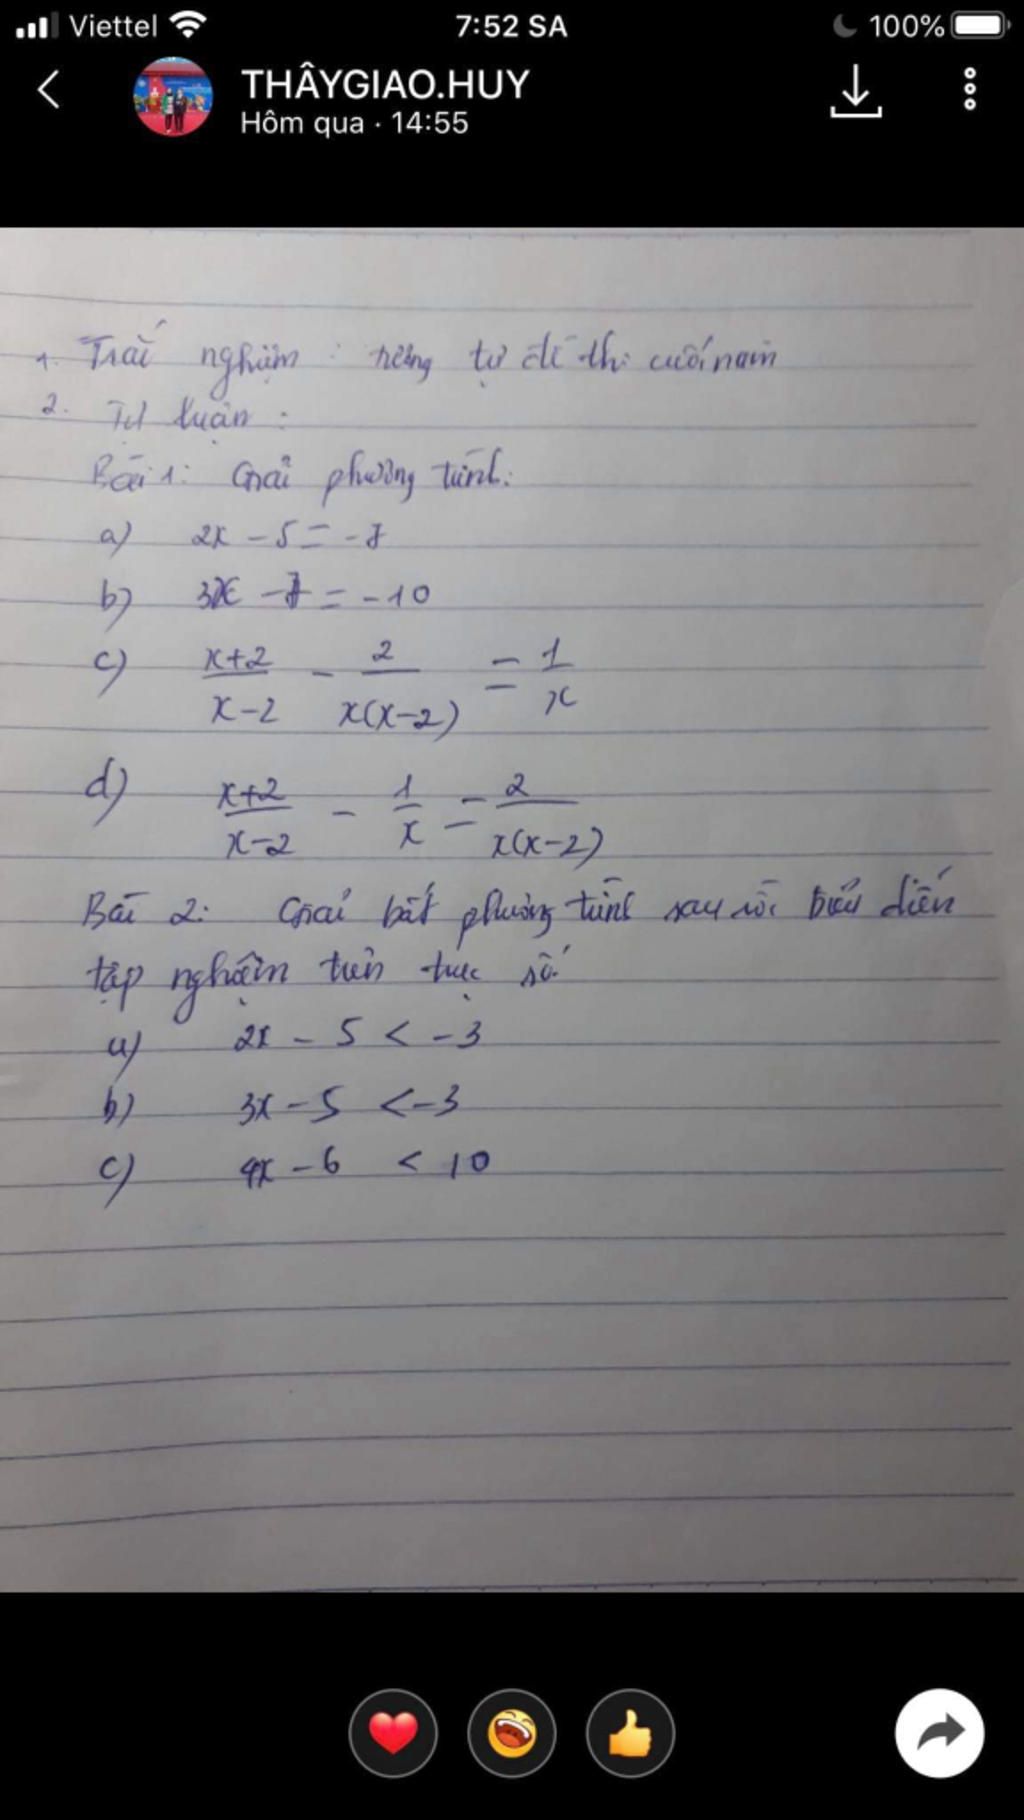 Viettel 7:52 SA 100%
THÂYGIAO.HUY
Hôm qua · 14:55
1. Trắc nghiệm : tự đề thi cuối năm
2. Tự luận :
Bài 1: Giải phương trình:
a) 2x - 5 = -7
b) 3x - 7 = -10
c) \frac{x+2}{x-2} - \frac{2}{x(x-2)} = \frac{1}{x}
d) \frac{x+2}{x-2} - \frac{1}{x} = \frac{2}{x(x-2)}
Bài 2: Giải bất phương trình sau rồi biểu diễn
tập nghiệm trên trục số
a) 2x - 5 < -3
b) 3x - 5 < -3
c) 4x - 6 < 10